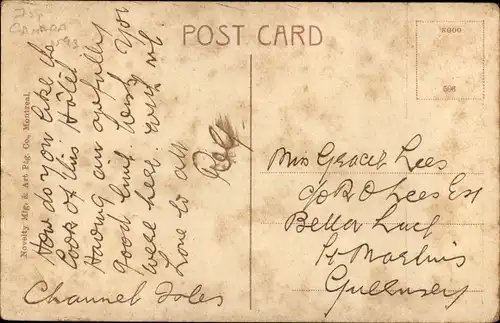 POST CARD
How do you like the
look of this Hotel
Having an awfully
good time. Wish you
were here. with us.
Love to all
Reg
Channel Isles
Miss Grace Lees
c/o R O Lees Esq
Bella Luce
St Martins
Guernsey
Novelty Mfg. & Art Ptg. Co., Montreal.
CANADA